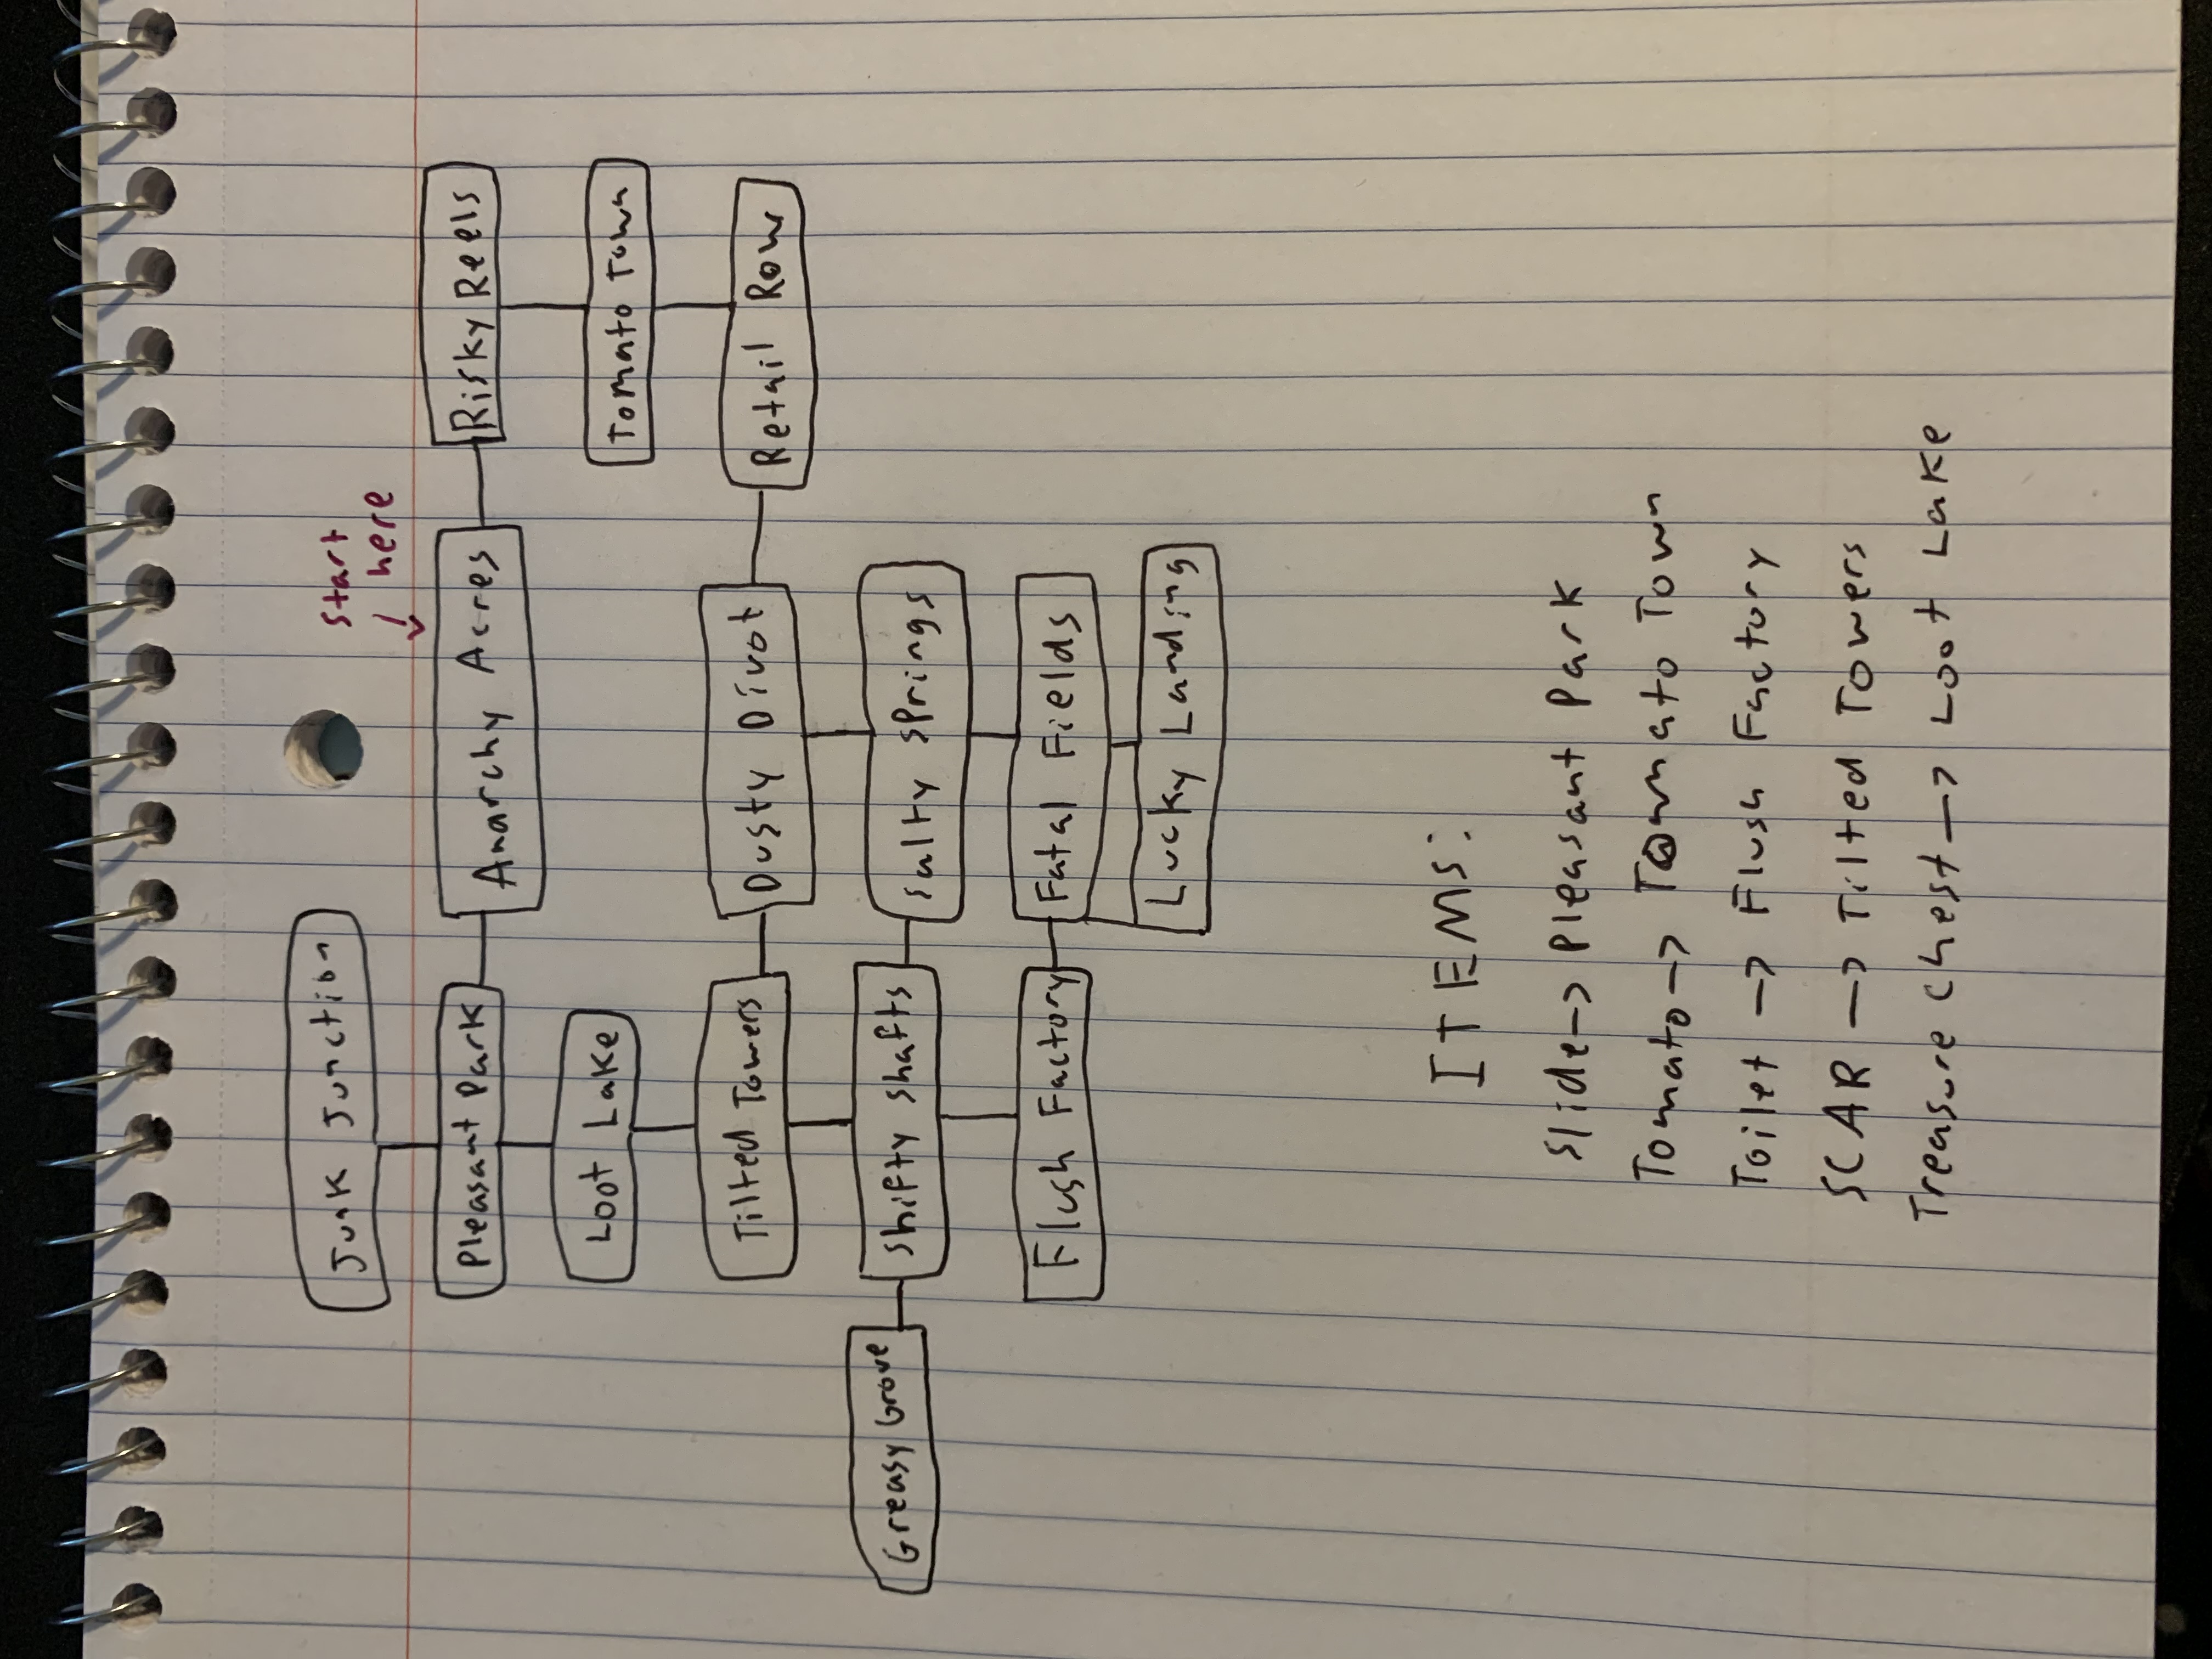 Junk Junction
start
here
Pleasant Park
Anarchy Acres
Risky Reels
Loot Lake
Tomato Town
Tilted Towers
Dusty Divot
Retail Row
Greasy Grove
Shifty Shafts
Salty Springs
Flush Factory
Fatal Fields
Lucky Landing
ITEMS:
Slide -> Pleasant Park
Tomato -> Tomato Town
Toilet -> Flush Factory
SCAR -> Tilted Towers
Treasure Chest -> Loot Lake